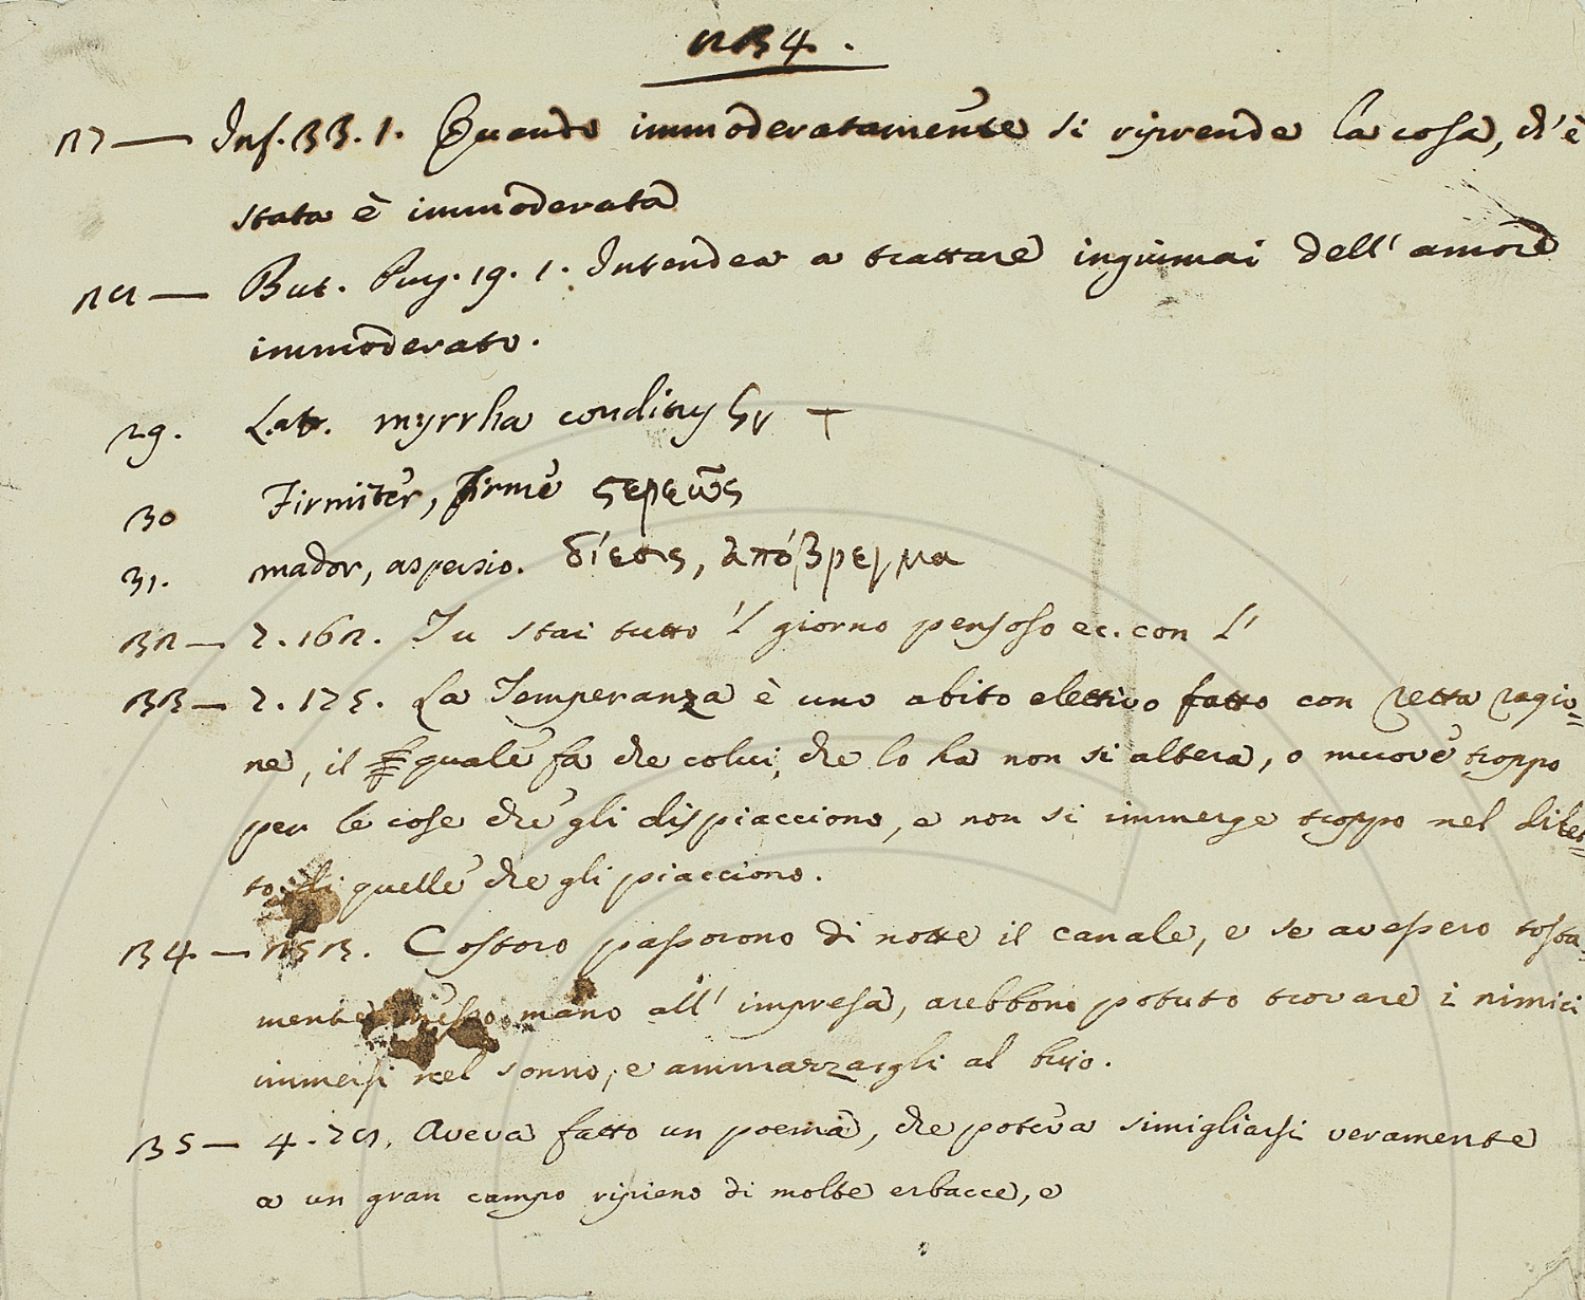 234.
27 — Inf. 33. 1. Quando immoderatamente si riprende la cosa, ch'è
stata è immoderata
28 — But. Purg. 19. 1. Intendea a trattare inguimai dell'amore
immoderato.
29. Lat. myrrha conditus +
30 Firmiter, firme ςερεῶς
31. mador, aspersio. δίεσις, ἀπόβρεγμα
32 — 2. 162. Tu stai tutto 'l giorno pensoso ec. con l'
33 — 2. 175. La Temperanza è uno abito elettivo fatto con retta ragio=
ne, il quale fa che colui, che lo ha non si altera, o muove troppo
per le cose che gli dispiacciono, e non si immerge troppo nel dilet=
to di quelle che gli piacciono.
34 — 253. Costoro passorono di notte il canale, e se avessero tosta=
mente messo mano all'impresa, arebbono potuto trovare i nimici
immersi nel sonno, e ammazzargli al buio.
35 — 4. 28. Aveva fatto un poema, che poteva simigliarsi veramente
a un gran campo ripieno di molte erbacce, e